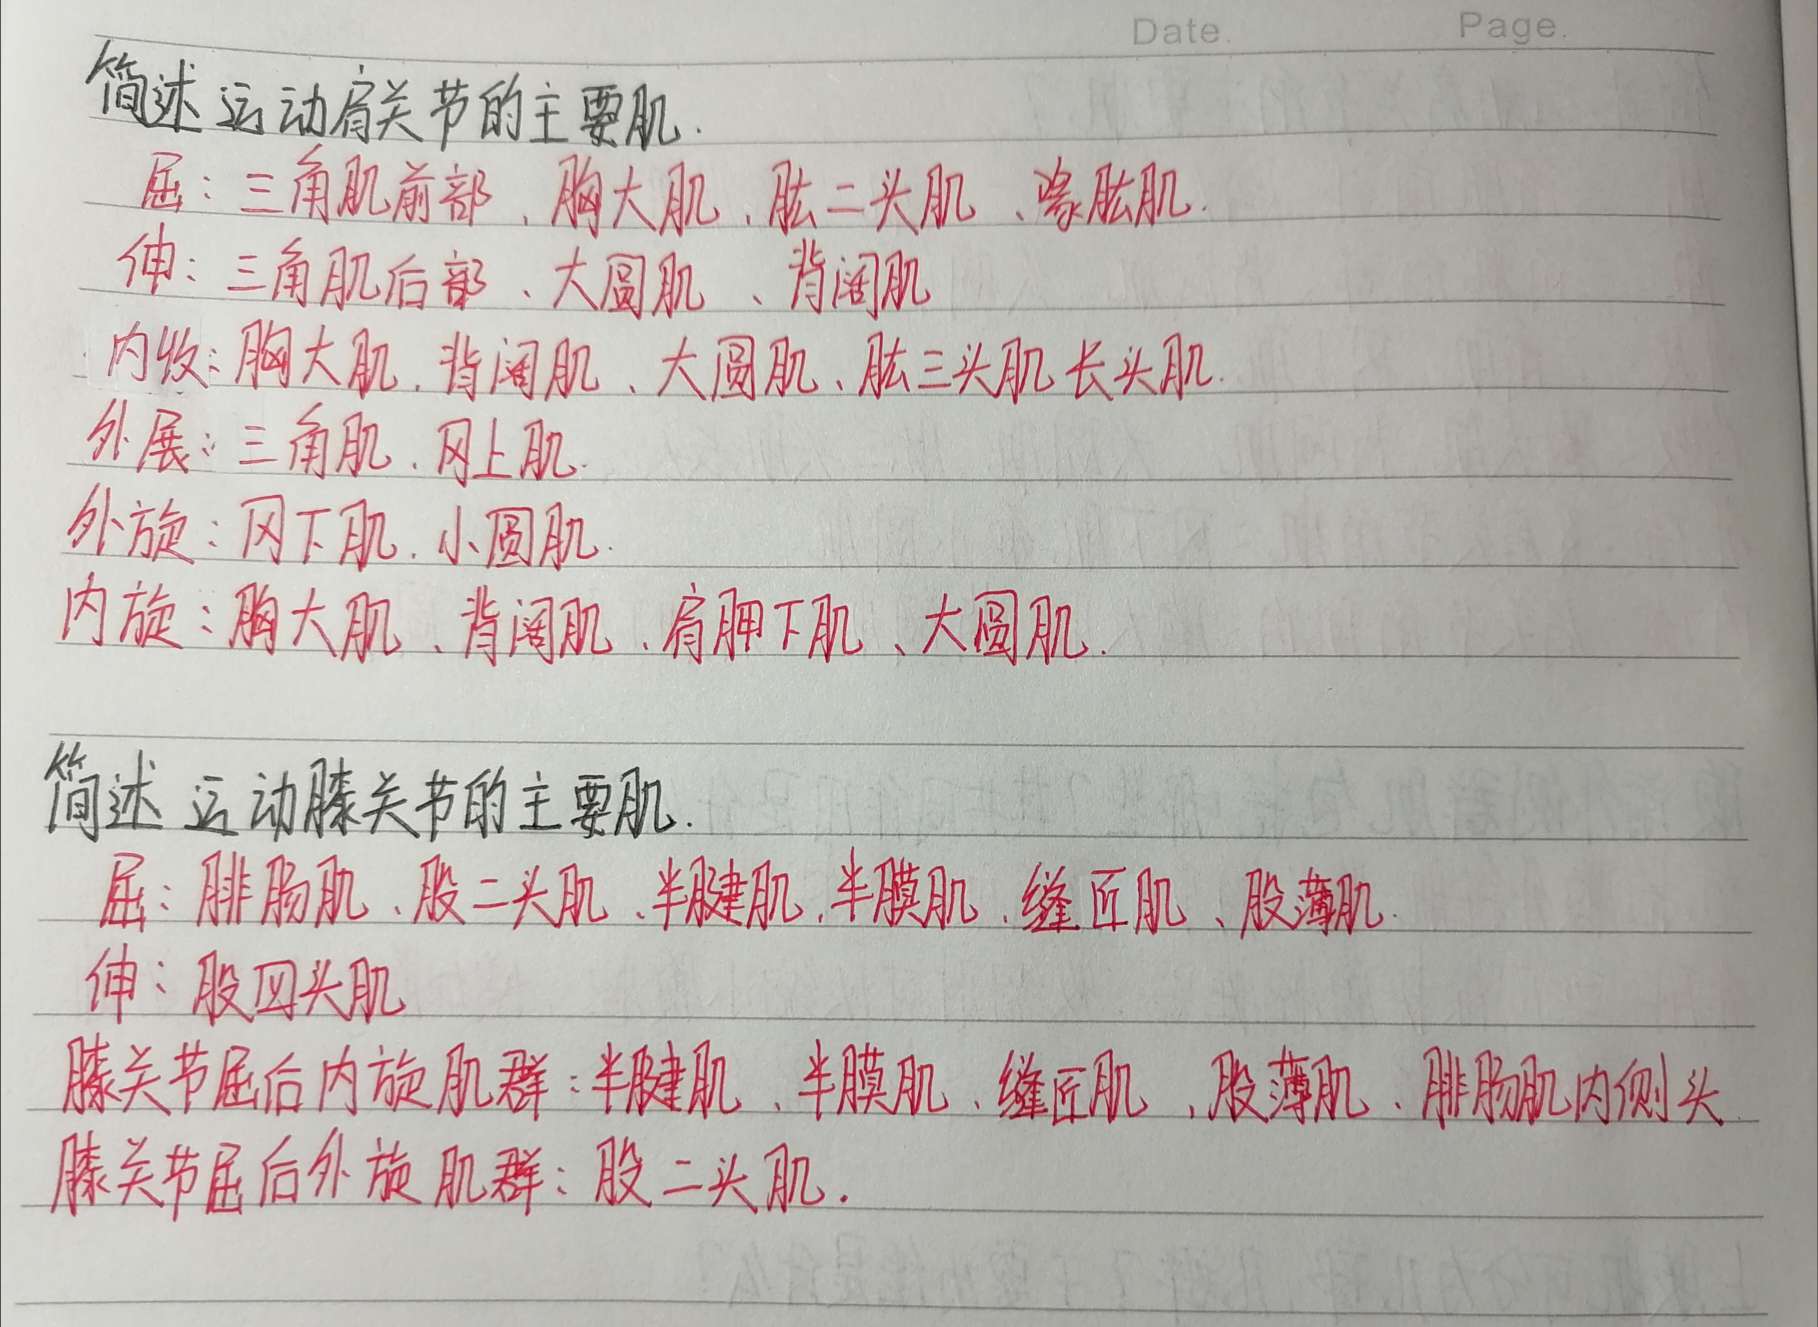 Date. Page.
简述运动肩关节的主要肌.
屈：三角肌前部、胸大肌、肱二头肌、喙肱肌.
伸：三角肌后部、大圆肌、背阔肌
内收：胸大肌、背阔肌、大圆肌、肱三头肌长头肌.
外展：三角肌、冈上肌.
外旋：冈下肌、小圆肌.
内旋：胸大肌、背阔肌、肩胛下肌、大圆肌.
简述运动膝关节的主要肌.
屈：腓肠肌、股二头肌、半腱肌、半膜肌、缝匠肌、股薄肌.
伸：股四头肌
膝关节屈后内旋肌群：半腱肌、半膜肌、缝匠肌、股薄肌、腓肠肌内侧头.
膝关节屈后外旋肌群：股二头肌.